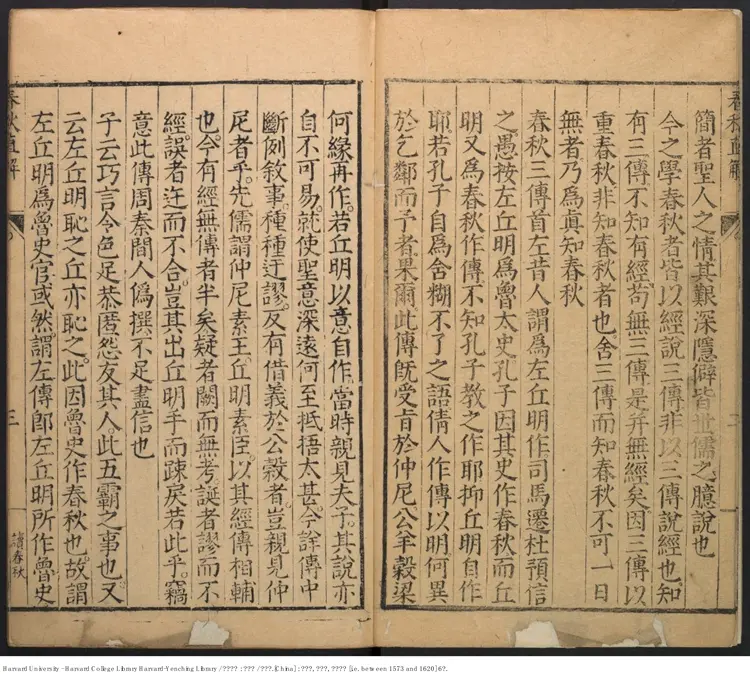 春秋直解
簡者聖人之情其艱深隱僻皆世儒之臆說也
今之學春秋者皆以經說三傳非以三傳說經也知
有三傳不知有經苟無三傳是并無經矣因三傳以
重春秋非知春秋者也舍三傳而知春秋不可一日
無者乃爲眞知春秋
春秋三傳首左昔人謂爲左丘明作司馬遷杜預信
之愚按左丘明爲魯太史孔子因其史作春秋而丘
明又爲春秋作傳不知孔子教之作耶抑丘明自作
耶若孔子自爲含糊不了之語倩人作傳以明何異
於乞鄰而予者果爾此傳旣受肯於仲尼公羊穀梁
何緣再作若丘明以意自作當時親見夫子其說亦
自不可易就使聖意深遠何至抵捂太甚今詳傳中
斷例敘事種種迂謬反有借義於公穀者豈親見仲
尼者乎先儒謂仲尼素王丘明素臣以其經傳相輔
也今有經無傳者半矣疑者闕而無考誕者謬而不
經誤者迕而不合豈其出丘明手而疎戾若此乎竊
意此傳周秦間人僞撰不足盡信也
子云巧言令色足恭匿怨友其人此五霸之事也又
云左丘明恥之丘亦恥之此因魯史作春秋也故謂
左丘明爲魯史官或然謂左傳卽左丘明所作魯史
春秋直解
三
讀春秋
Harvard University - Harvard College Library Harvard-Yenching Library / ???? : ??? / ???. [China] : ???, ???, ???? [i.e. between 1573 and 1620] 6?.